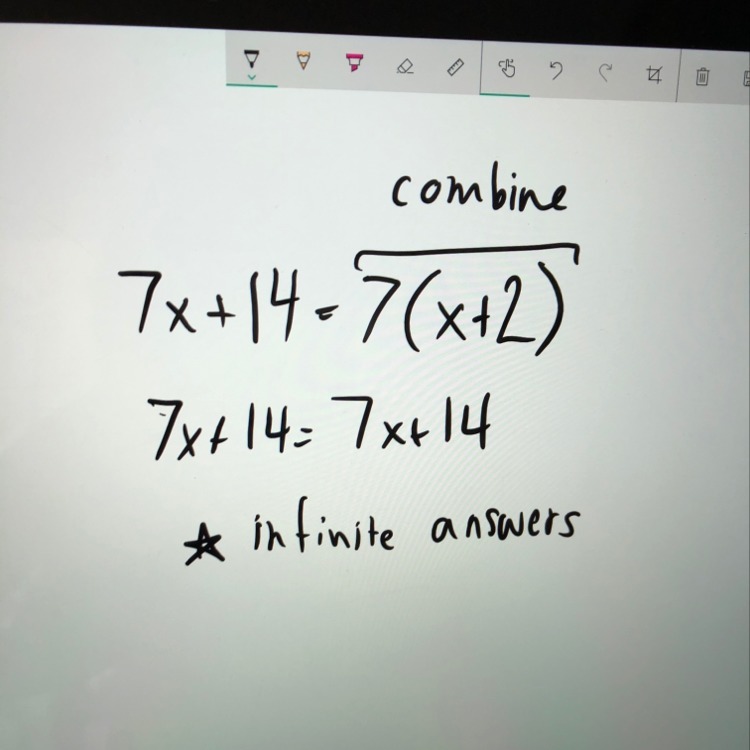 combine
7x+14=7(x+2)
7x+14=7x+14
☆ infinite answers